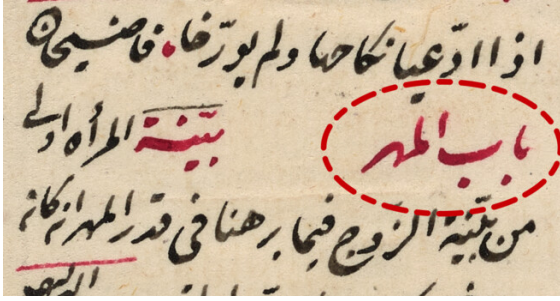 اذا ادّعيا نكاحها ولم يورّخا. قاضيخان
باب المهر بيّنة المرأه اولى
من بيّنة الزوج فيما برهنا فى قدر المهر ان كان